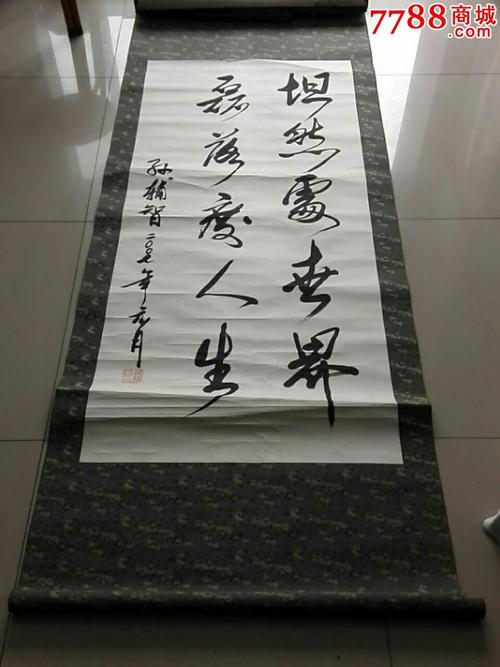 7788商城
.com
坦然處世界
磊落度人生
孙辅智二〇〇七年元月